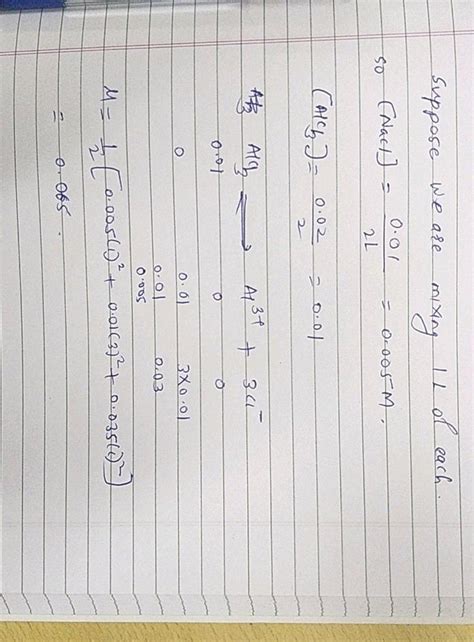 Suppose we are mixing 1L of each.
so [NaCl] = 0.01/2L = 0.005M.
[AlCl3] = 0.02/2 = 0.01
AlCl3 ⟶ Al3+ + 3Cl-
0.01 0 0
0 0.01 3×0.01
0.01 0.03
0.005
μ = 1/2 [0.005(1)² + 0.01(3)² + 0.035(1)²]
= 0.065.